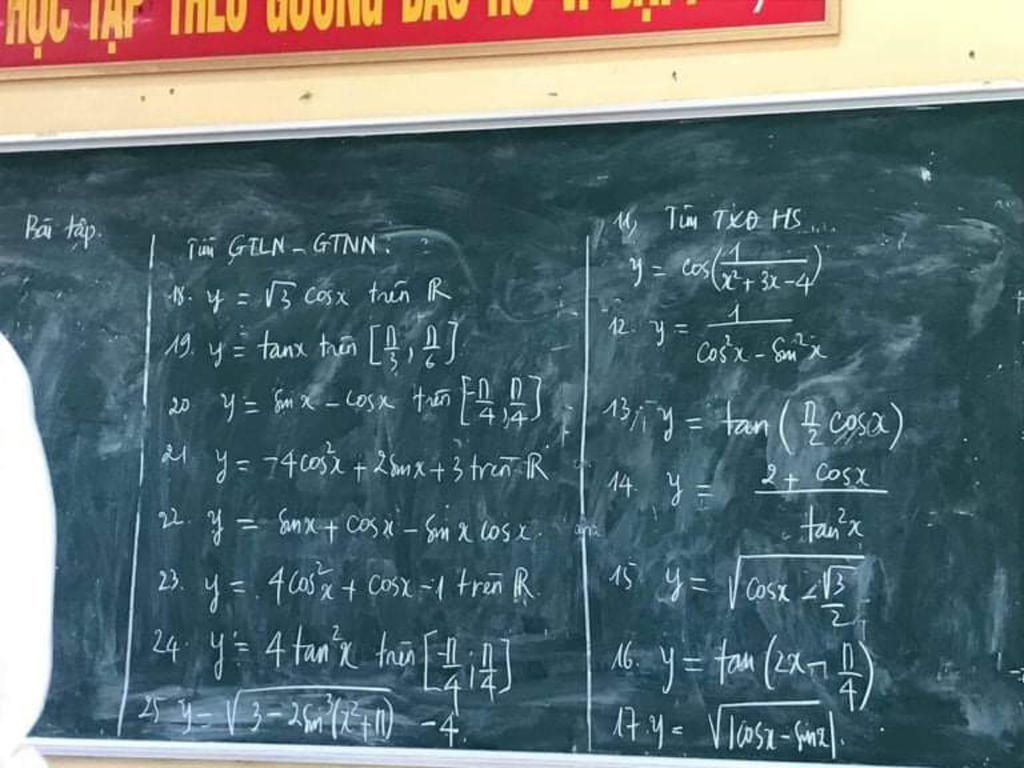 HỌC TẬP THEO GƯƠNG BÁC HỒ VĨ ĐẠI
Bài tập.
Tìm GTLN - GTNN.
18. y = √3 cosx trên R
19. y = tanx trên [π/3, π/6]
20 y = sinx - cosx trên [-π/4, π/4]
21 y = -4cos²x + 2sinx + 3 trên R
22. y = sinx + cosx - sinx cosx.
23. y = 4cos²x + cosx - 1 trên R.
24. y = 4tan²x trên [-π/4; π/4]
25 y = √(3 - 2sin³(x²+π)) - 4.
11, Tìm TXĐ HS
y = cos(1/(x²+3x-4))
12. y = 1/(cos²x - sin²x)
13, y = tan(π/2 cosx)
14. y = (2 + cosx)/tan²x
15 y = √(cosx - √3/2)
16. y = tan(2x - π/4)
17. y = √|cosx - sinx|.